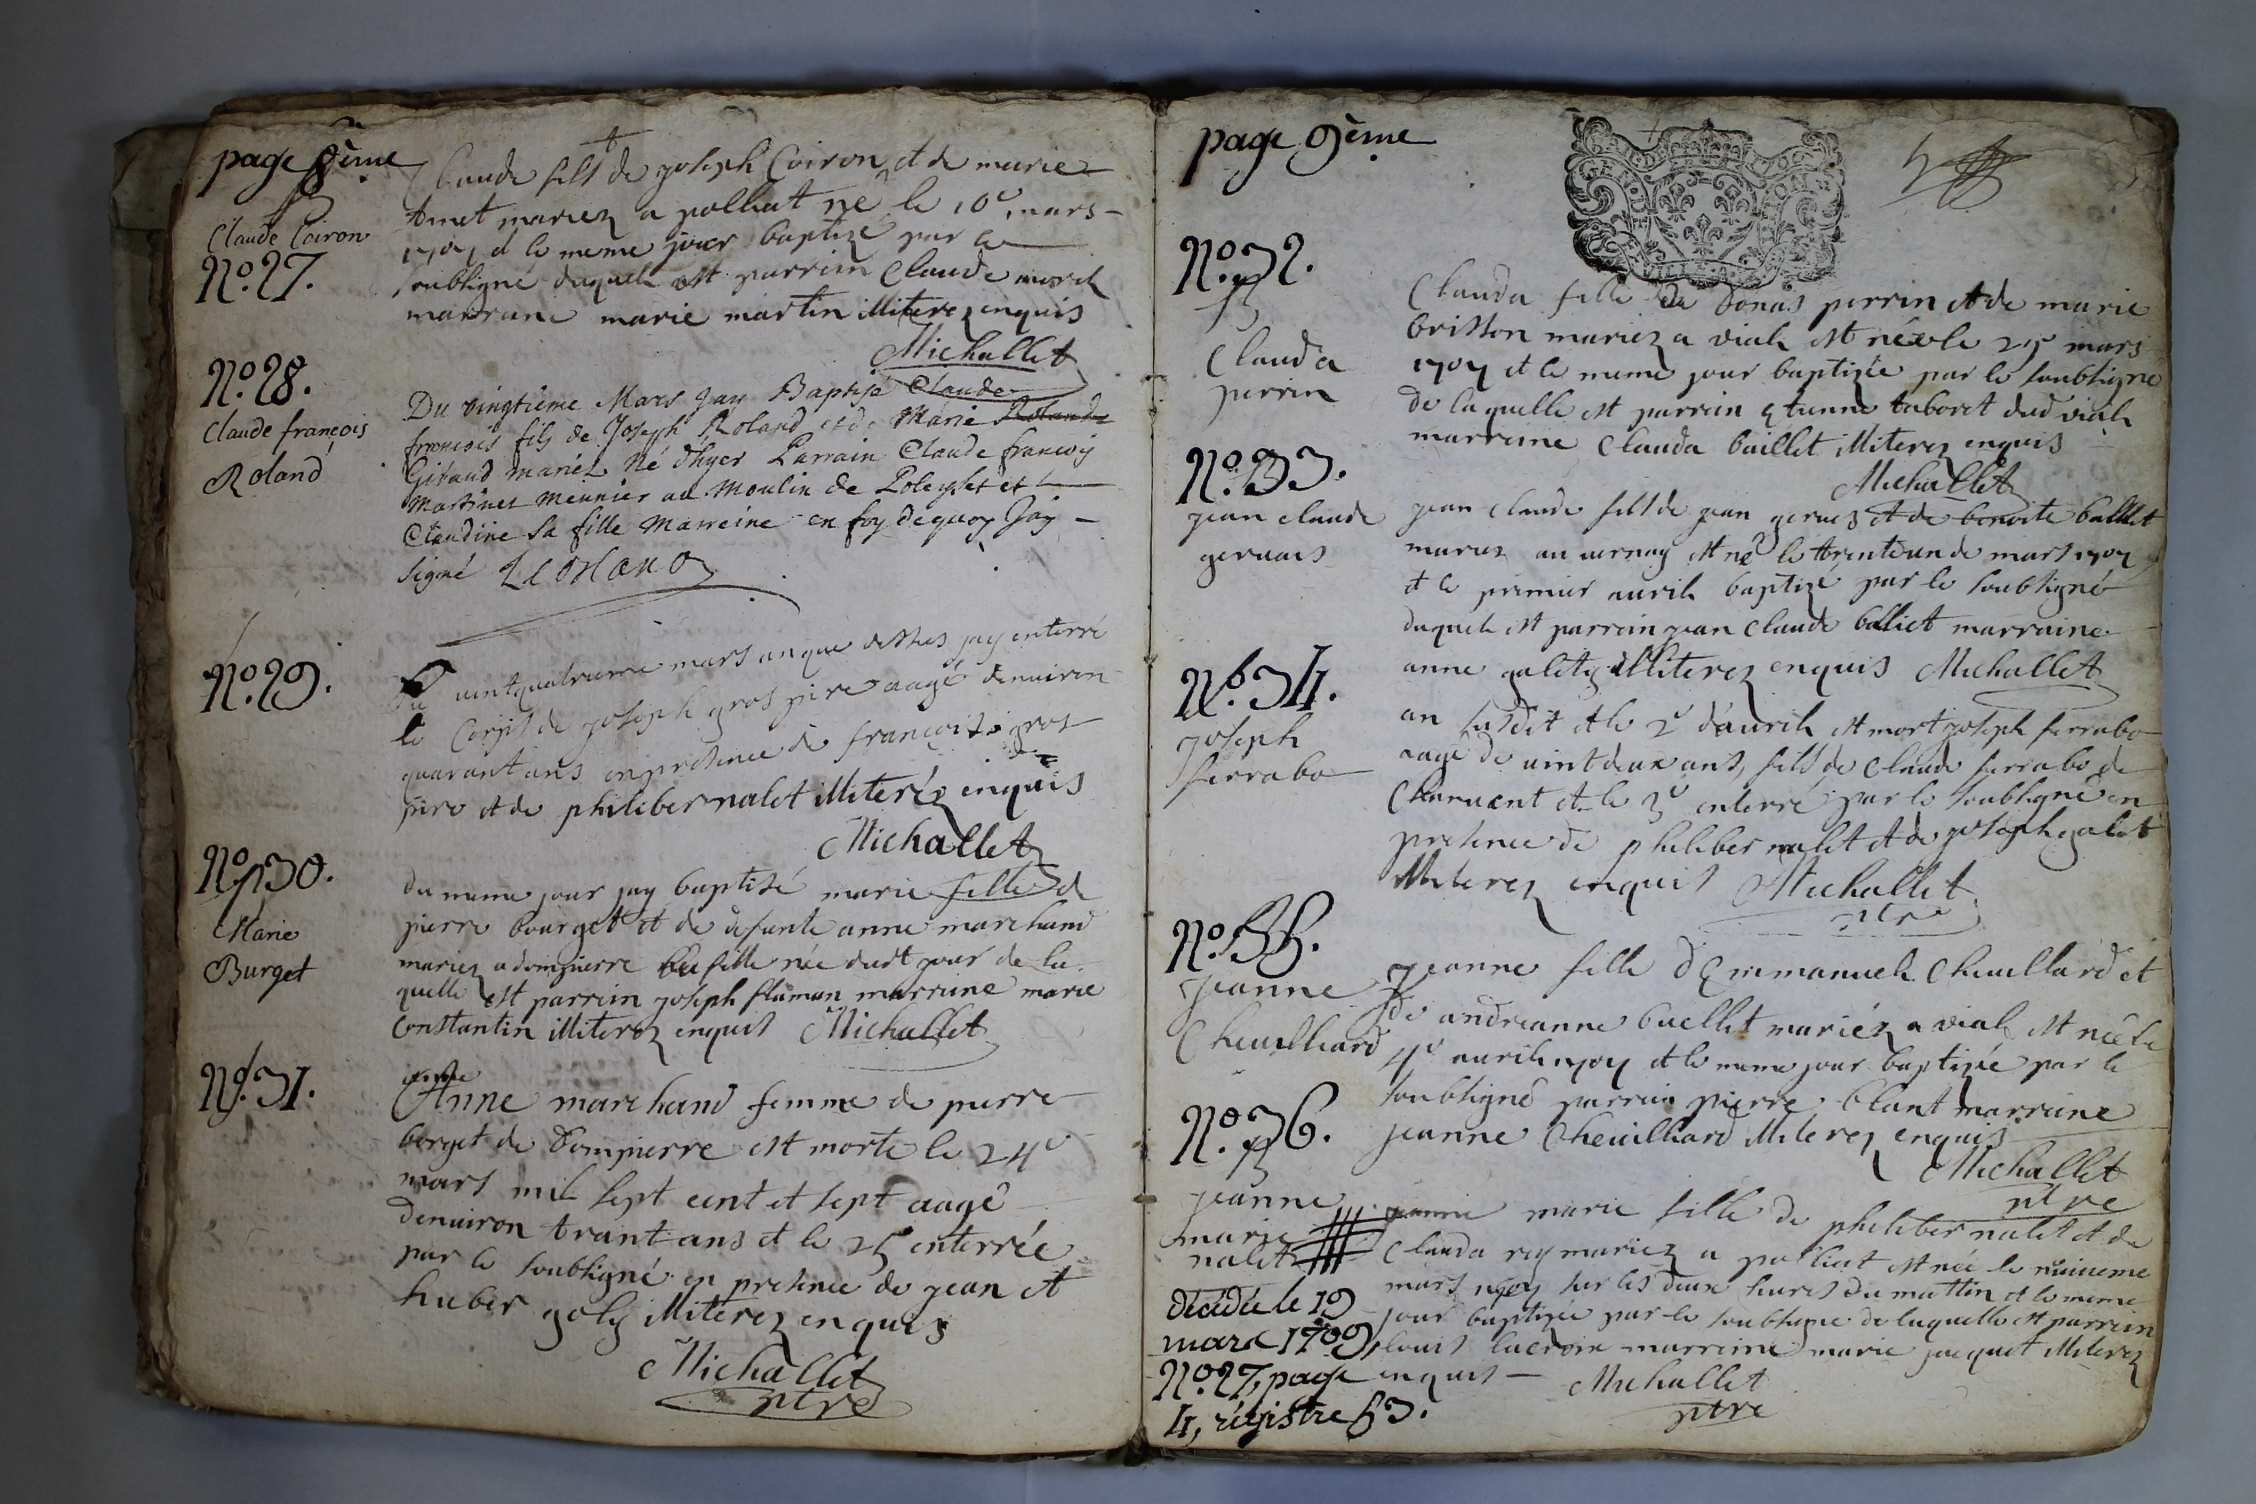 page 8ème
Claude Coiron
No. 27.
Claude fils de joseph Coiron et de marie
Amet mariez a polliat né le 10e mars
1707 et le meme jour baptizé par le
soubsigné duquel est parrin Claude morel
marrine marie martin illiterez enquis
Michallet
No. 28.
Claude françois
Roland
Du vingtième Mars Jay Baptisé Claude
françois fils de Joseph Roland et de Marie Rolande
Giraud mariéz Né d'hyer Parrain Claude françois
Martinet meunier au Moulin de Poleyset et
Claudine sa fille Marreine en foy dequoy Jay
signé
No. 29.
Du vintquatrieme mars an que dessus jay enterré
le Corps de joseph gros pire aagé denuiron
quarant ans en presence de françois gros
pire et de philiber nalet illiteréz enquis
Michallet
No. 30.
Marie
Burget
du meme jour jay baptisé marie fille de
pierre bourget et de defunte anne marchand
mariez a dompierre fille née dudt jour de la
quelle est parrin joseph flaman marrine marie
Constantin illiterez enquis Michallet
No. 31.
Anne marchand femme de pierre
borget de Dompierre est morte le 24e
mars mil sept cent et sept aagé
denuiron trant ans et le 25 enterrée
par le soubsigné en presence de jean et
huber goly illiterez enquis
Michallet
ptre
page 9ème
GEN DE DIION
No. 32.
Clauda
perrin
Clauda fille de Donas perrin et de marie
brisson mariez a vial est née le 25 mars
1707 et le meme jour baptizée par le soubsigné
de laquelle est parrin etienne taboret dud vial
marrine Clauda baillet illiterez enquis
Michallet
No. 33.
jean claude
geruais
jean claude fils de jean geruais et de benoite balliet
mariez au uernay est né le trenteun de mars 1707
et le premier auril baptizé par le soubsigné
duquel est parrein jean claude balliet marraine
anne galety illiterez enquis Michallet
No. 34.
joseph
ferrabo
an susdit et le 2e dauril est mort joseph ferrabo
aagé de uint deux ans, fils de Claude ferrabo de
et le 3e enterré par le soubsigné en
presence de philiber nalet et de joseph galet
illiterez enquis Michallet
ptre
No. 35.
Jeanne
Cheuilliard
Jeanne fille d'Emmanuel Cheuillard et
de andreanne buellet mariéz a vial est née le
4e auril 1707 et le meme jour baptizée par le
soubsigné parrin pierre blant marrine
jeanne Cheuilliard illiterez enquis
Michallet
ptre
No. 36.
jeanne
marie
nalet
décédée le 19
mars 1709,
No. 27, page
4, régistre 53.
jeanne marie fille de philiber nalet et de
Clauda rey mariez a polliat est née le
mars 1707 sur les deux heures du mattin et le meme
jour baptizée par le soubsigné de laquelle est parrein
louis lacroix marreine marie jacquet illiterez
enquis Michallet
ptre